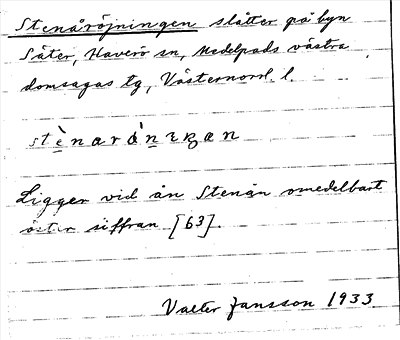 Stenåröjningen slåtter på byn
Säter, Haverö sn, Medelpads västra
domsagas tg, Västernorrl. l.
Ligger vid ån Stenån omedelbart
öster siffran [63].
Valter Jansson 1933